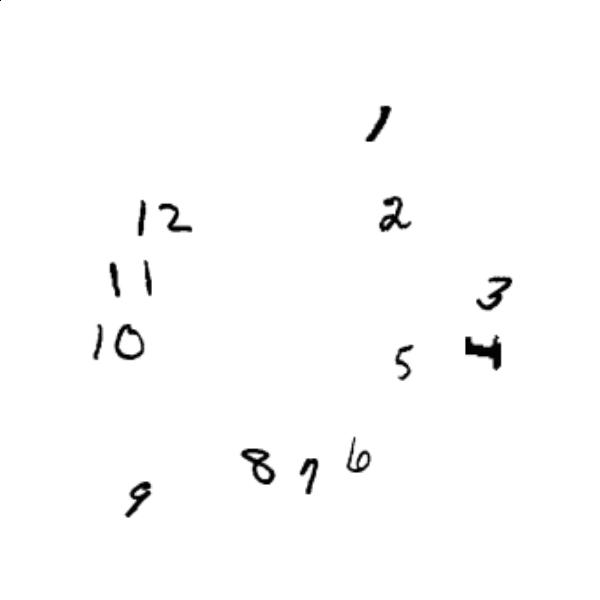 1
12
2
11
3
10
4
5
8
7
6
9